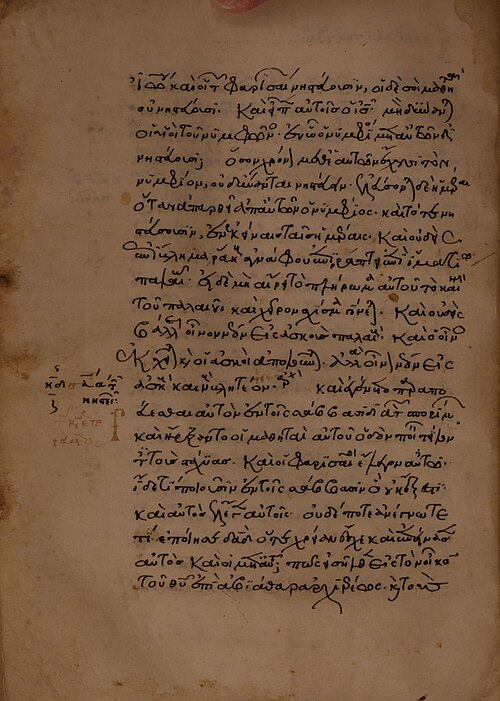 Ἰω καὶ οἱ τ Φαρισαί νηστεύουσιν, οἱ δὲ σοὶ μαθηταὶ
οὐ νηστεύουσι. Καὶ εἶπ αὐτοῖς ὁ ις· μὴ δύναν
οἱ υἱοὶ τοῦ νυμφῶνο. ἐν ὧ ὁ νυμφί μετ αὐτῶν ἐ
νηστεύειν; ὅσον χρόν μεθ' αὐτῶν ἔχουσι τὸν
νυμφίον, οὐ δύνανται νηστεύειν. ἐλεύσον δὲ ἡμέραι
ὅταν ἀπαρθῆ ἀπ' αὐτῶν ὁ νυμφίος· καὶ τότε νη
στεύσουσιν, ἐν ἐκείναις ταῖς ἡμέραις. Καὶ οὐδεὶς
ἐπίβλημα ράκ ἀγνάφου ἐπιράπτει ἐπὶ ἱματί
παλαι. εἰ δὲ μὴ αἴρει τὸ πλήρωμ αὐτοῦ τὸ καινὸν
τοῦ παλαιοῦ καὶ χεῖρον σχίσμ γίνε. Καὶ οὐδεὶς
βάλλει οἶνον νέον εἰς ἀσκοὺς παλαι. καὶ ὁ οἶνο
ἐκχ κ οἱ ἀσκοὶ ἀπολοῦν. ἀλλὰ οἶν νέον εἰς
ἀσκ καινοὺς βλητέον. καὶ ἐγένετο παραπο
ρεύεσθαι αὐτὸν ἐν τοῖς σάββασι διὰ τ σπορίμ
καὶ ἤρξαντο οἱ μαθηταὶ αὐτοῦ ὁδὸν ποιεῖν τίλλον
τ τοὺς στάχυας. Καὶ οἱ Φαρισαῖ ἔλεγον αὐτῷ·
ἴδε τί ποιοῦσιν ἐν τοῖς σάββασιν ὃ οὐκ ἔξεστι·
καὶ αὐτὸς ἔλεγεν αὐτοῖς· οὐδέποτε ἀνέγνωτε
τί ἐποίησε δαδ ὅτε χρείαν ἔσχε καὶ ἐπείνασεν
αὐτὸς καὶ οἱ μετ αὐτ; πῶς εἰσῆλθ εἰς τὸν οἶκο
τοῦ θυ ἐπὶ ἀβιάθαρ ἀρχιερέως· κ τοὺς